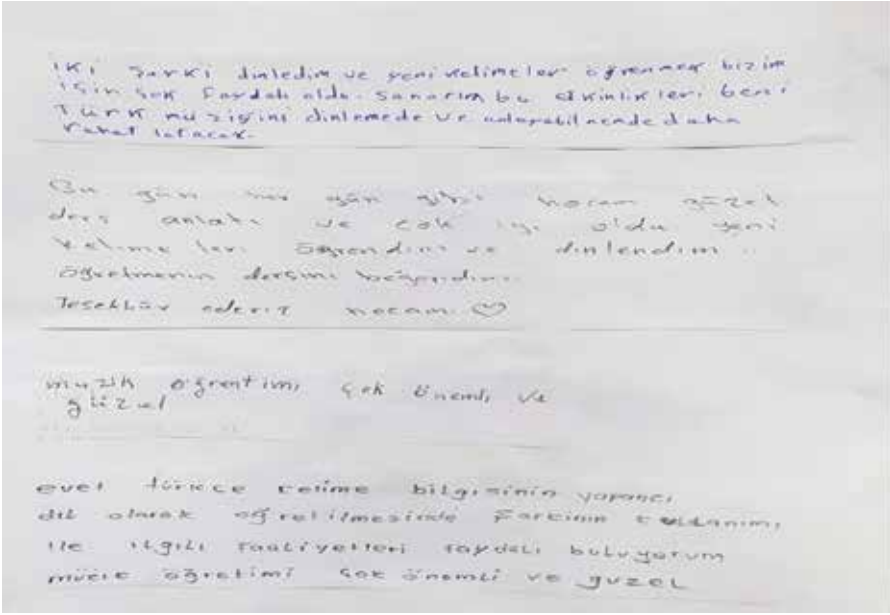 iki şarki dinledim ve yeni kelimeler öğrenmek bizim
için çok faydalı oldu. Sanarım bu etkinlikleri beni
Türk müziğini dinlemede ve anlayabilmemde daha
rahat
Bu gün her gün gibi hocam güzel
ders anlatı ve çok iyi oldu yeni
kelime leri öğrendim ve dinlendim ..
öğretmenin dersini beğendim.
Teşekkür ederiz hocam ♡
muzik öğrentimi çok önemli ve
güzel
evet türkce kelime bilgisinin yapancı
dil olarak öğretilmesinde şarkinin kullanımı
ile ilgili faaliyetleri faydalı buluyorum
öğretimi çok önemli ve güzel